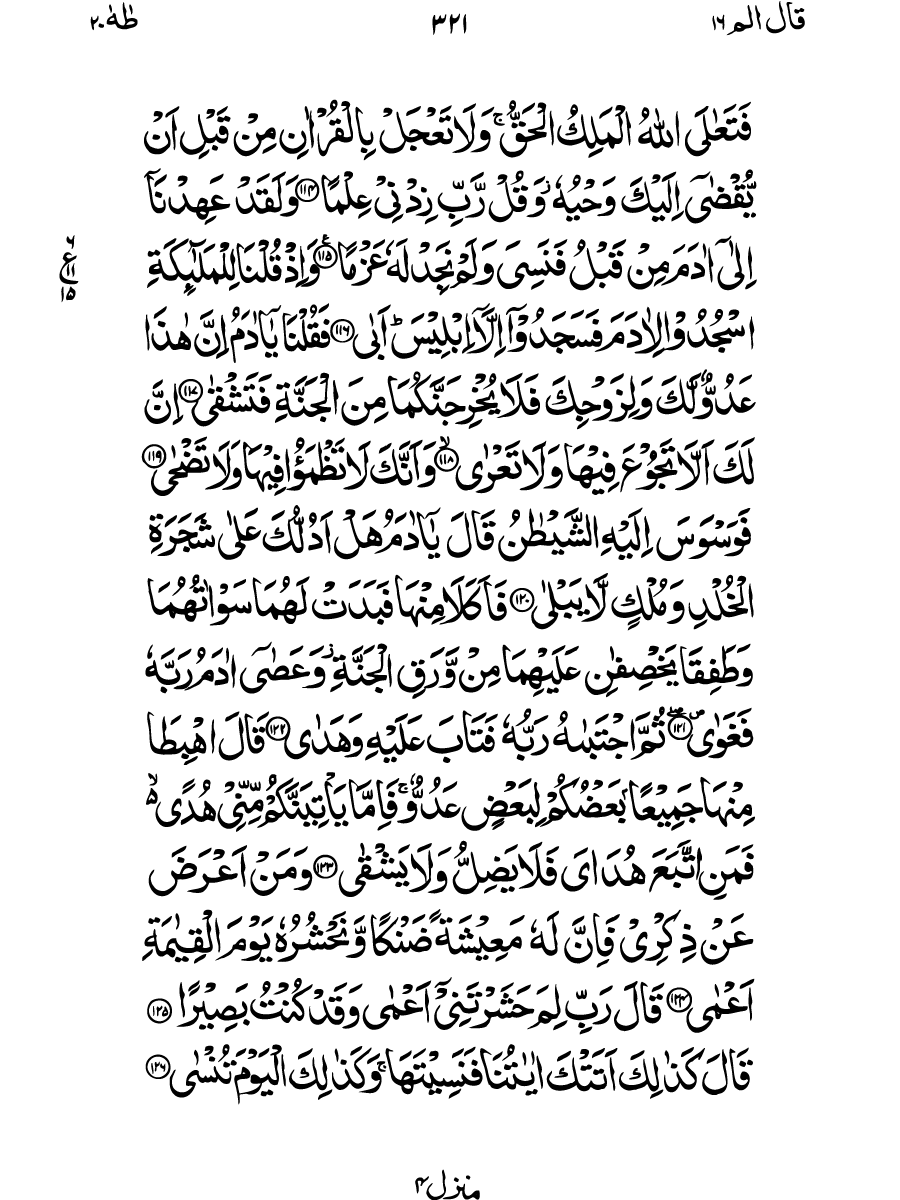 قال الم ۱۶
۳۲۱
طٰهٰ ۲۰
فَتَعٰلَى اللّٰهُ الْمَلِكُ الْحَقُّ ۚ وَلَا تَعْجَلْ بِالْقُرْاٰنِ مِنْ قَبْلِ اَنْ
يُّقْضٰۤى اِلَيْكَ وَحْيُهٗ ؗ وَقُلْ رَّبِّ زِدْنِيْ عِلْمًا ﴿۱۱۴﴾ وَلَقَدْ عَهِدْنَاۤ
اِلٰۤى اٰدَمَ مِنْ قَبْلُ فَنَسِيَ وَلَمْ نَجِدْ لَهٗ عَزْمًا ﴿۱۱۵﴾ وَاِذْ قُلْنَا لِلْمَلٰٓئِكَةِ
ع ۶ ۱۱ ۱۵
اسْجُدُوْا لِاٰدَمَ فَسَجَدُوْۤا اِلَّاۤ اِبْلِيْسَ ؕ اَبٰى ﴿۱۱۶﴾ فَقُلْنَا يٰۤاٰدَمُ اِنَّ هٰذَا
عَدُوٌّ لَّكَ وَلِزَوْجِكَ فَلَا يُخْرِجَنَّكُمَا مِنَ الْجَنَّةِ فَتَشْقٰى ﴿۱۱۷﴾ اِنَّ
لَكَ اَلَّا تَجُوْعَ فِيْهَا وَلَا تَعْرٰى ۙ﴿۱۱۸﴾ وَاَنَّكَ لَا تَظْمَؤُا فِيْهَا وَلَا تَضْحٰى ﴿۱۱۹﴾
فَوَسْوَسَ اِلَيْهِ الشَّيْطٰنُ قَالَ يٰۤاٰدَمُ هَلْ اَدُلُّكَ عَلٰى شَجَرَةِ
الْخُلْدِ وَمُلْكٍ لَّا يَبْلٰى ﴿۱۲۰﴾ فَاَكَلَا مِنْهَا فَبَدَتْ لَهُمَا سَوْاٰتُهُمَا
وَطَفِقَا يَخْصِفٰنِ عَلَيْهِمَا مِنْ وَّرَقِ الْجَنَّةِ ؗ وَعَصٰۤى اٰدَمُ رَبَّهٗ
فَغَوٰى ۪ۖ﴿۱۲۱﴾ ثُمَّ اجْتَبٰىهُ رَبُّهٗ فَتَابَ عَلَيْهِ وَهَدٰى ﴿۱۲۲﴾ قَالَ اهْبِطَا
مِنْهَا جَمِيْعًۢا بَعْضُكُمْ لِبَعْضٍ عَدُوٌّ ۚ فَاِمَّا يَاْتِيَنَّكُمْ مِّنِّيْ هُدًى ۬ۙ
فَمَنِ اتَّبَعَ هُدَايَ فَلَا يَضِلُّ وَلَا يَشْقٰى ﴿۱۲۳﴾ وَمَنْ اَعْرَضَ
عَنْ ذِكْرِيْ فَاِنَّ لَهٗ مَعِيْشَةً ضَنْكًا وَّنَحْشُرُهٗ يَوْمَ الْقِيٰمَةِ
اَعْمٰى ﴿۱۲۴﴾ قَالَ رَبِّ لِمَ حَشَرْتَنِيْۤ اَعْمٰى وَقَدْ كُنْتُ بَصِيْرًا ﴿۱۲۵﴾
قَالَ كَذٰلِكَ اَتَتْكَ اٰيٰتُنَا فَنَسِيْتَهَا ۚ وَكَذٰلِكَ الْيَوْمَ تُنْسٰى ﴿۱۲۶﴾
منزل ۴